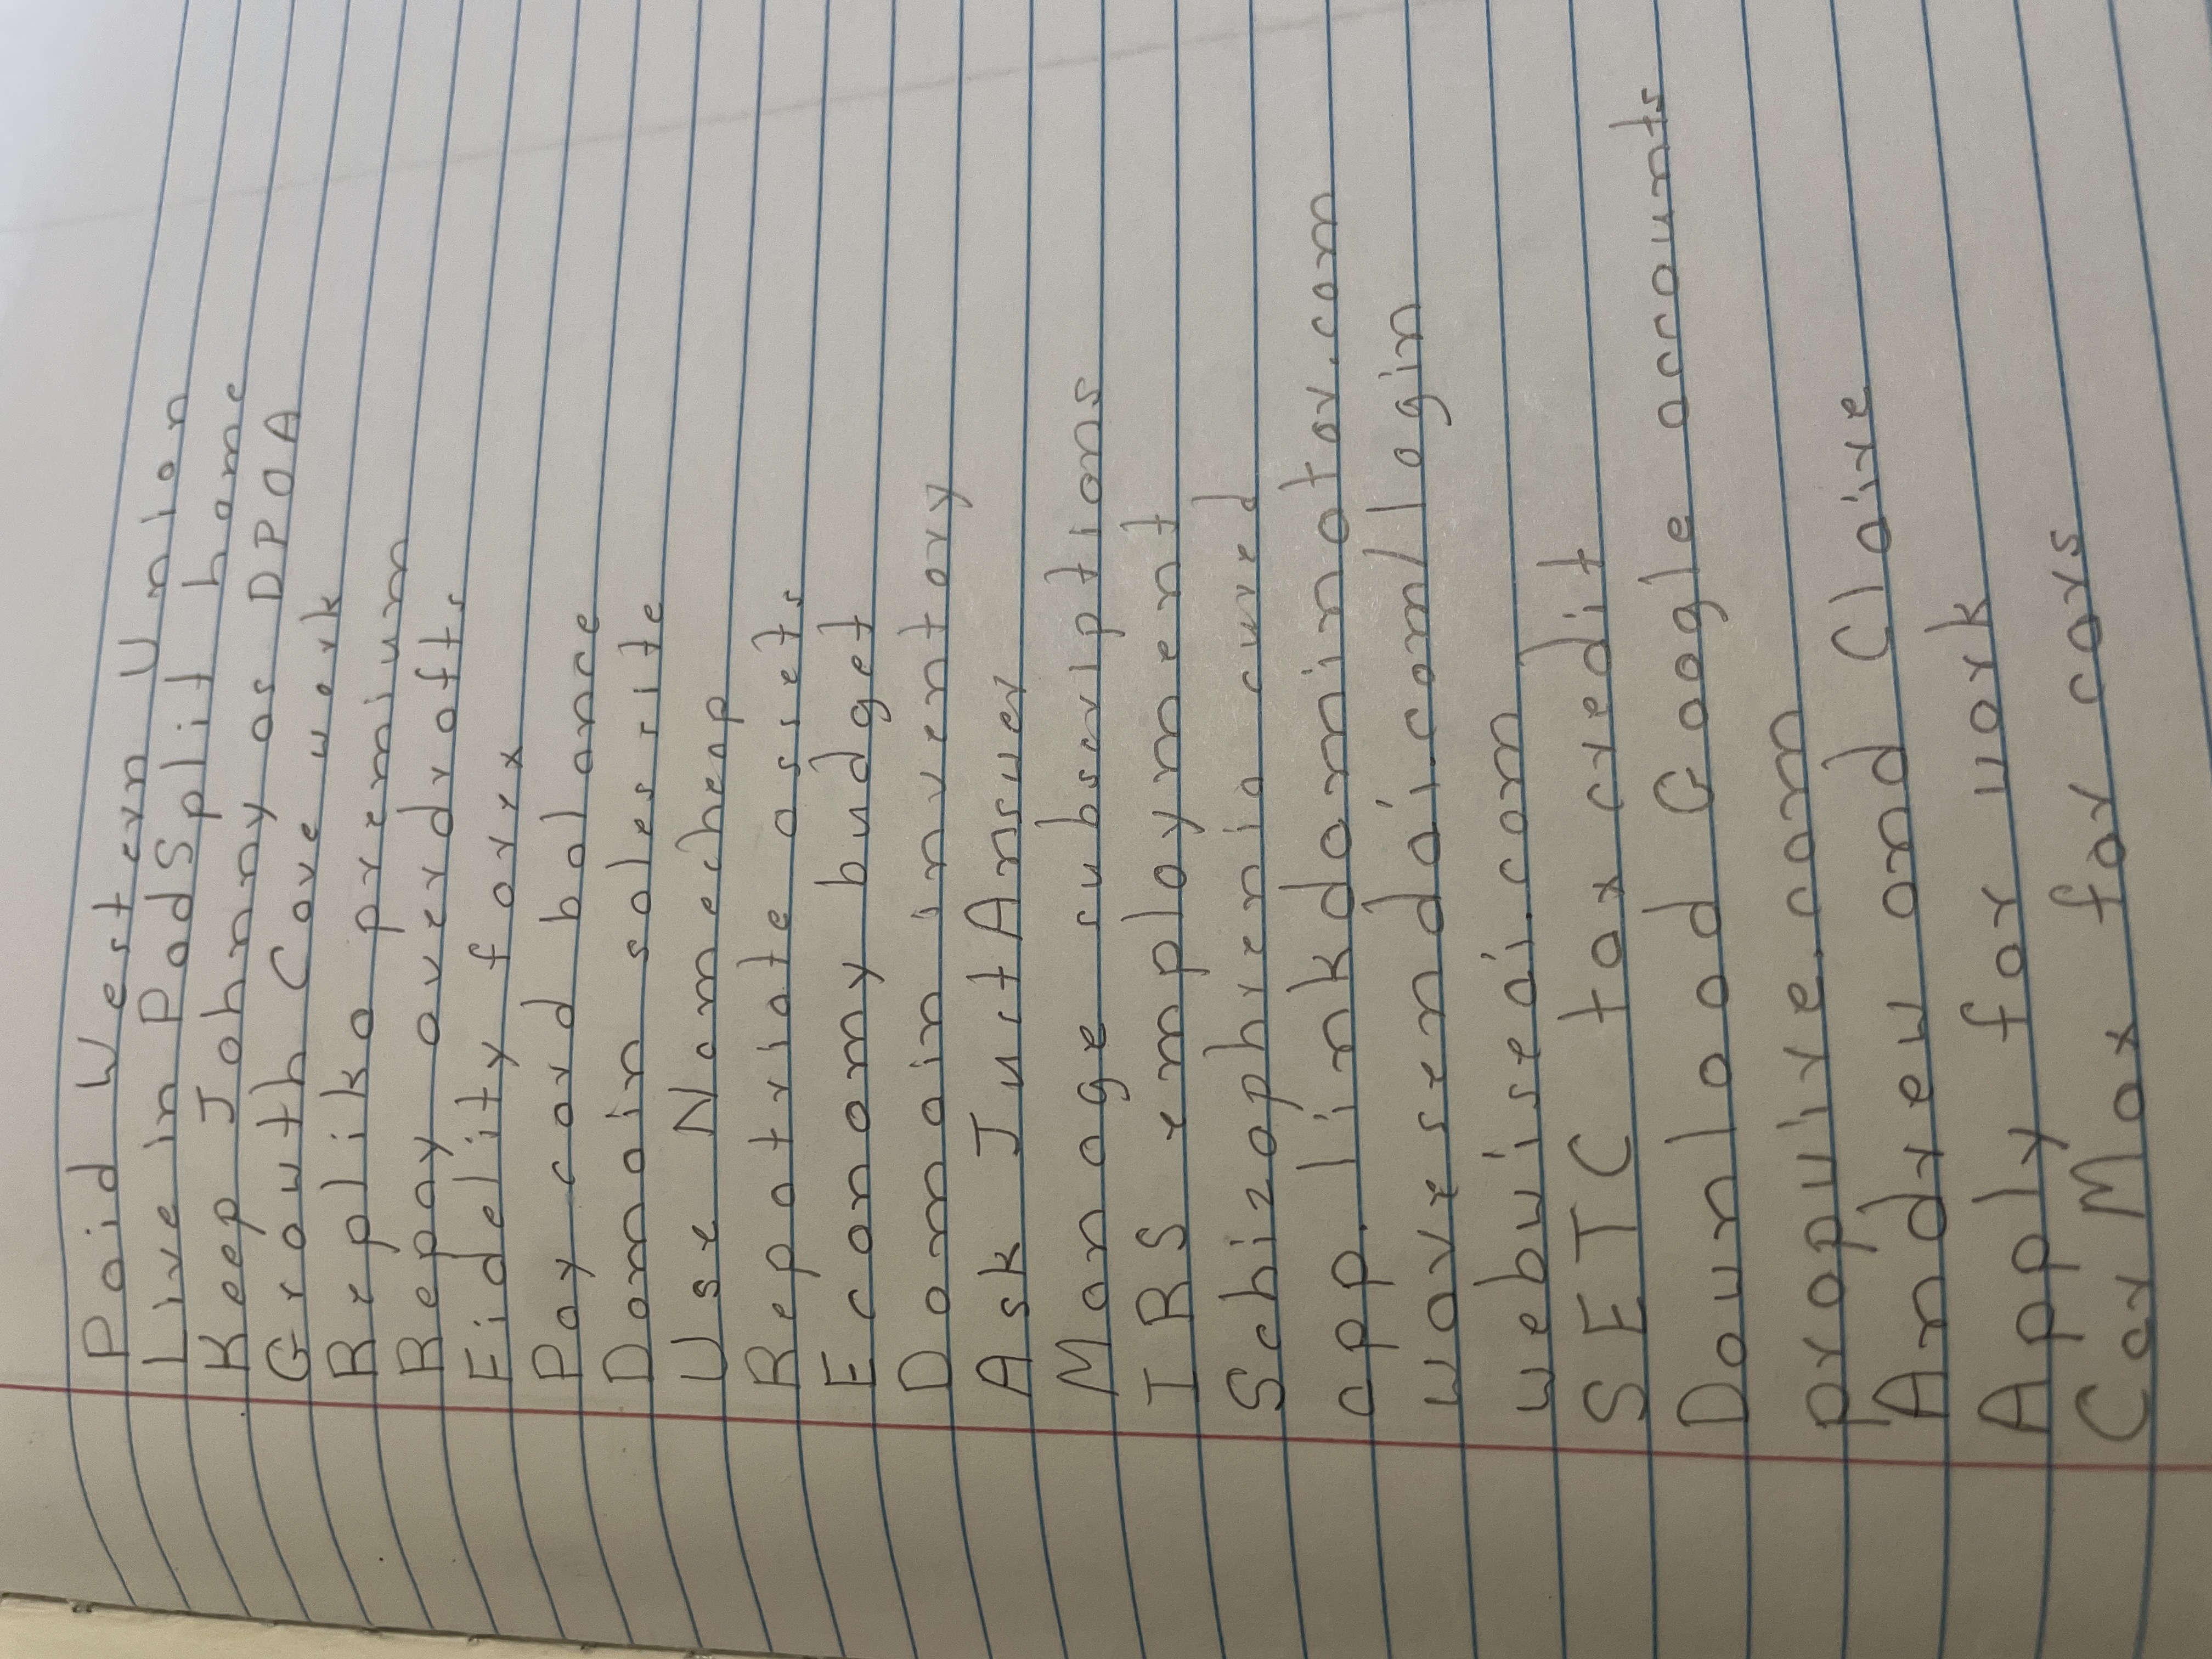 Paid Western Union
Live in PadSplit home
Keep Johnny as DPOA
Growth Cave work
Replika premium
Repay overdrafts
Fidelity forx
Pay card balance
Domain sales site
Use Namecheap
Repatriate assets
Economy budget
Domain inventory
Ask JustAnswer
Manage subscriptions
IRS employment
Schizophrenia cured
app.linkdominator.com
wavesendai.com/login
webwiseai.com
SETC tax credit
Downlad Google accounts
propwire.com
Andrew and Claire
Apply for work
CarMax for cars